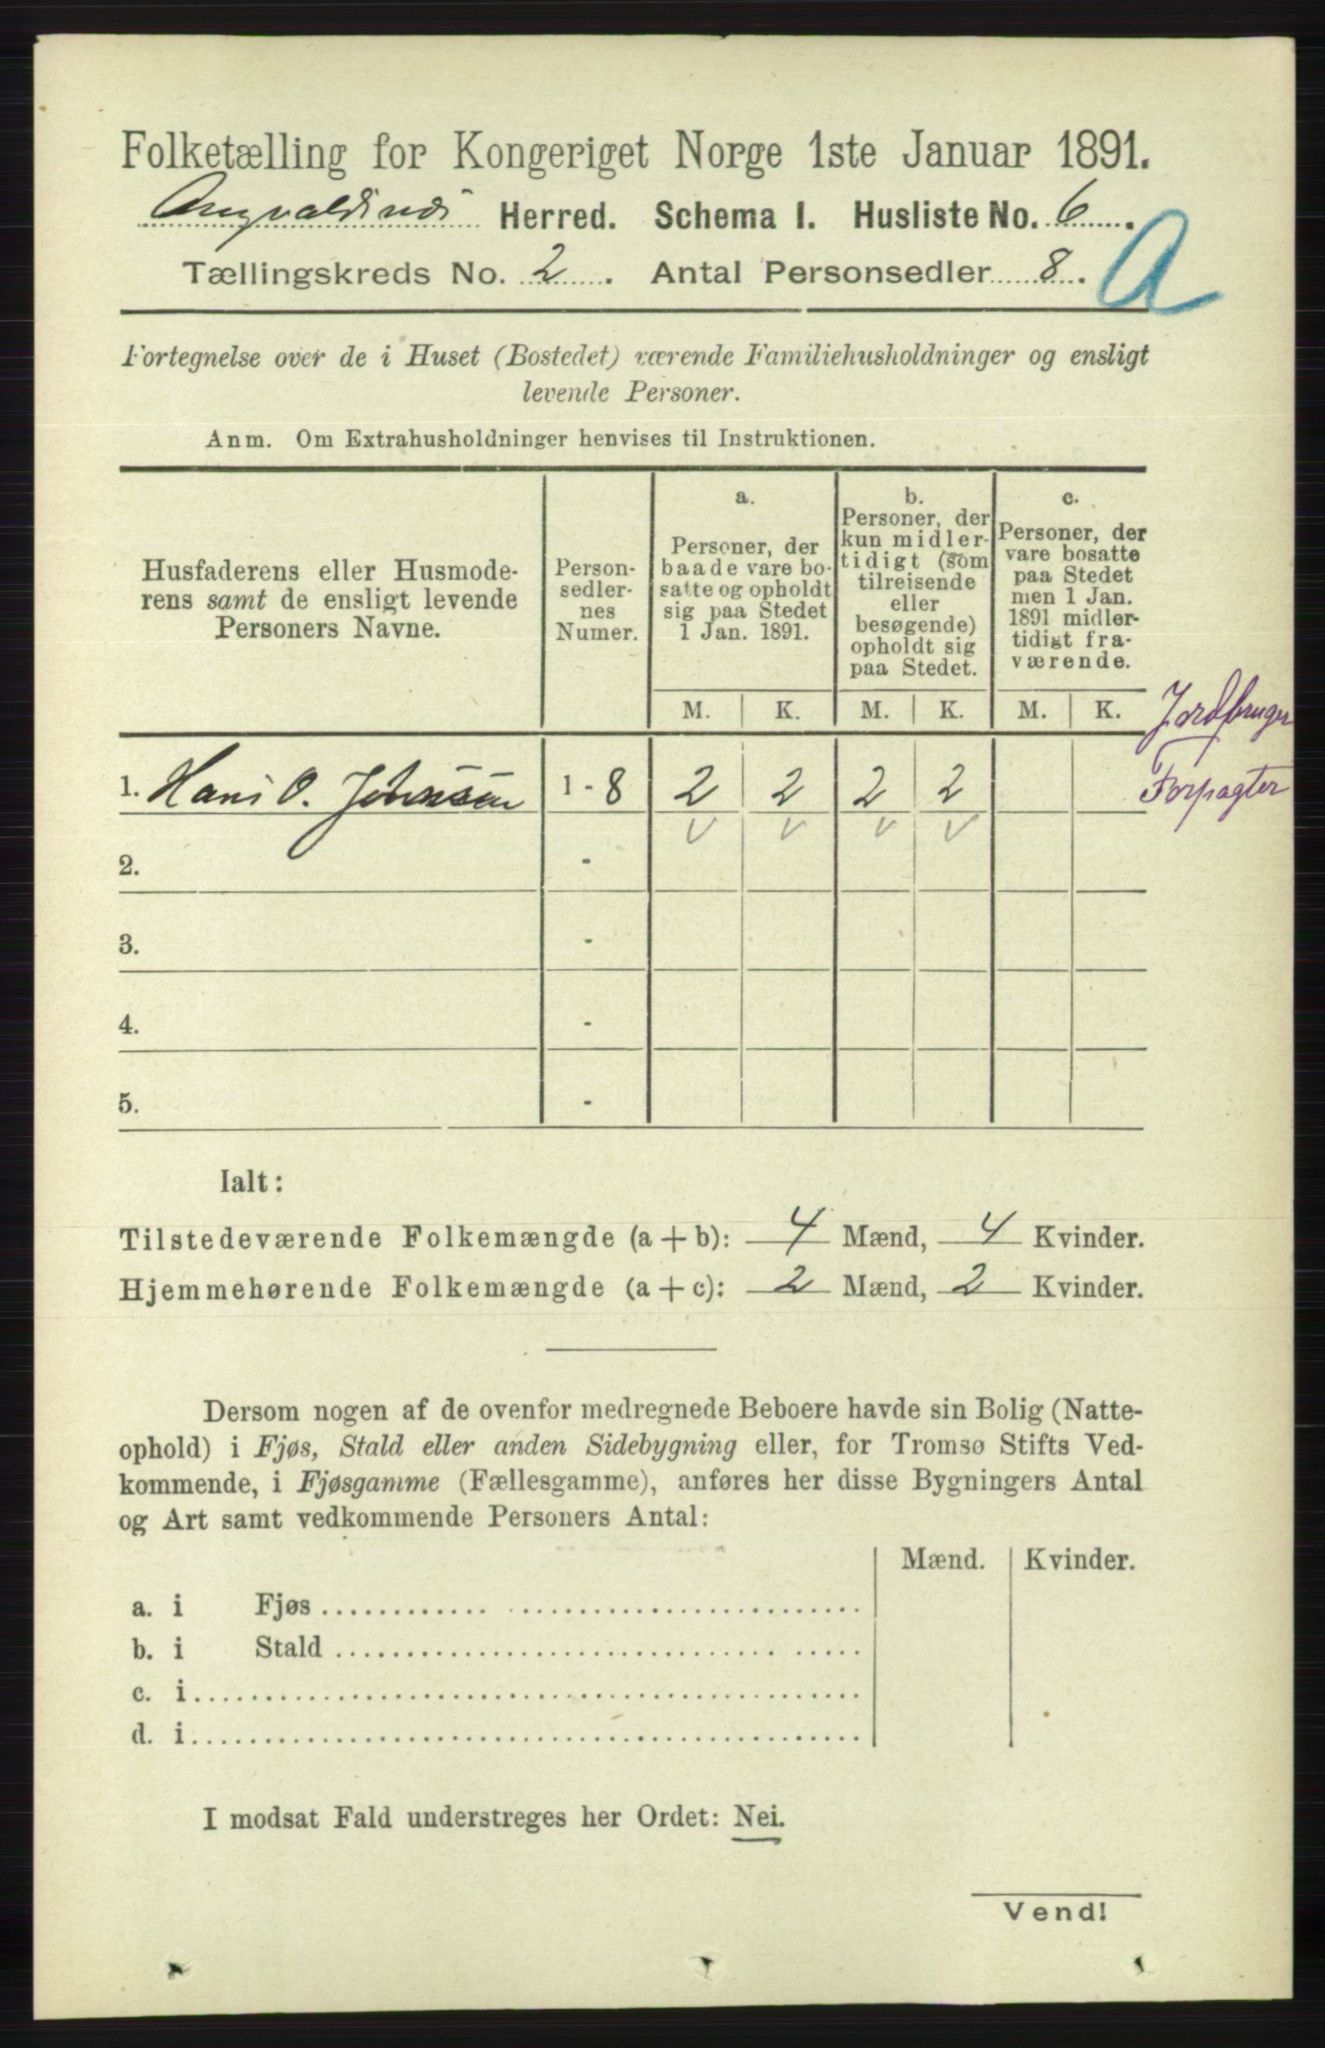 Folketælling for Kongeriget Norge 1ste Januar 1891.
Herred. Schema I. Husliste No. 6.
Tællingskreds No. 2. Antal Personsedler 8. A
Fortegnelse over de i Huset (Bostedet) værende Familiehusholdninger og ensligt
levende Personer.
Anm. Om Extrahusholdninger henvises til Instruktionen.
Husfaderens eller Husmode-
rens samt de ensligt levende
Personers Navne.
Person-
sedler-
nes
Numer.
a.
Personer, der
baade vare bo-
satte og opholdt
sig paa Stedet
1 Jan. 1891.
b.
Personer, der
kun midler-
tidigt (som
tilreisende
eller
besøgende)
opholdt sig
paa Stedet.
c.
Personer, der
vare bosatte
paa Stedet
men 1 Jan.
1891 midler-
tidigt fra-
værende.
M. K. M. K. M. K.
Jordbruger
Forpagter
1. Hans O. Johnssen 1 - 8 2 2 2 2
v v v v
2. -
3. -
4. -
5. -
Ialt:
Tilstedeværende Folkemængde (a + b): 4 Mænd, 4 Kvinder.
Hjemmehørende Folkemængde (a + c): 2 Mænd, 2 Kvinder.
Dersom nogen af de ovenfor medregnede Beboere havde sin Bolig (Natte-
ophold) i Fjøs, Stald eller anden Sidebygning eller, for Tromsø Stifts Ved-
kommende, i Fjøsgamme (Fællesgamme), anføres her disse Bygningers Antal
og Art samt vedkommende Personers Antal:
Mænd. Kvinder.
a. i Fjøs
b. i Stald
c. i
d. i
I modsat Fald understreges her Ordet: Nei.
Vend!